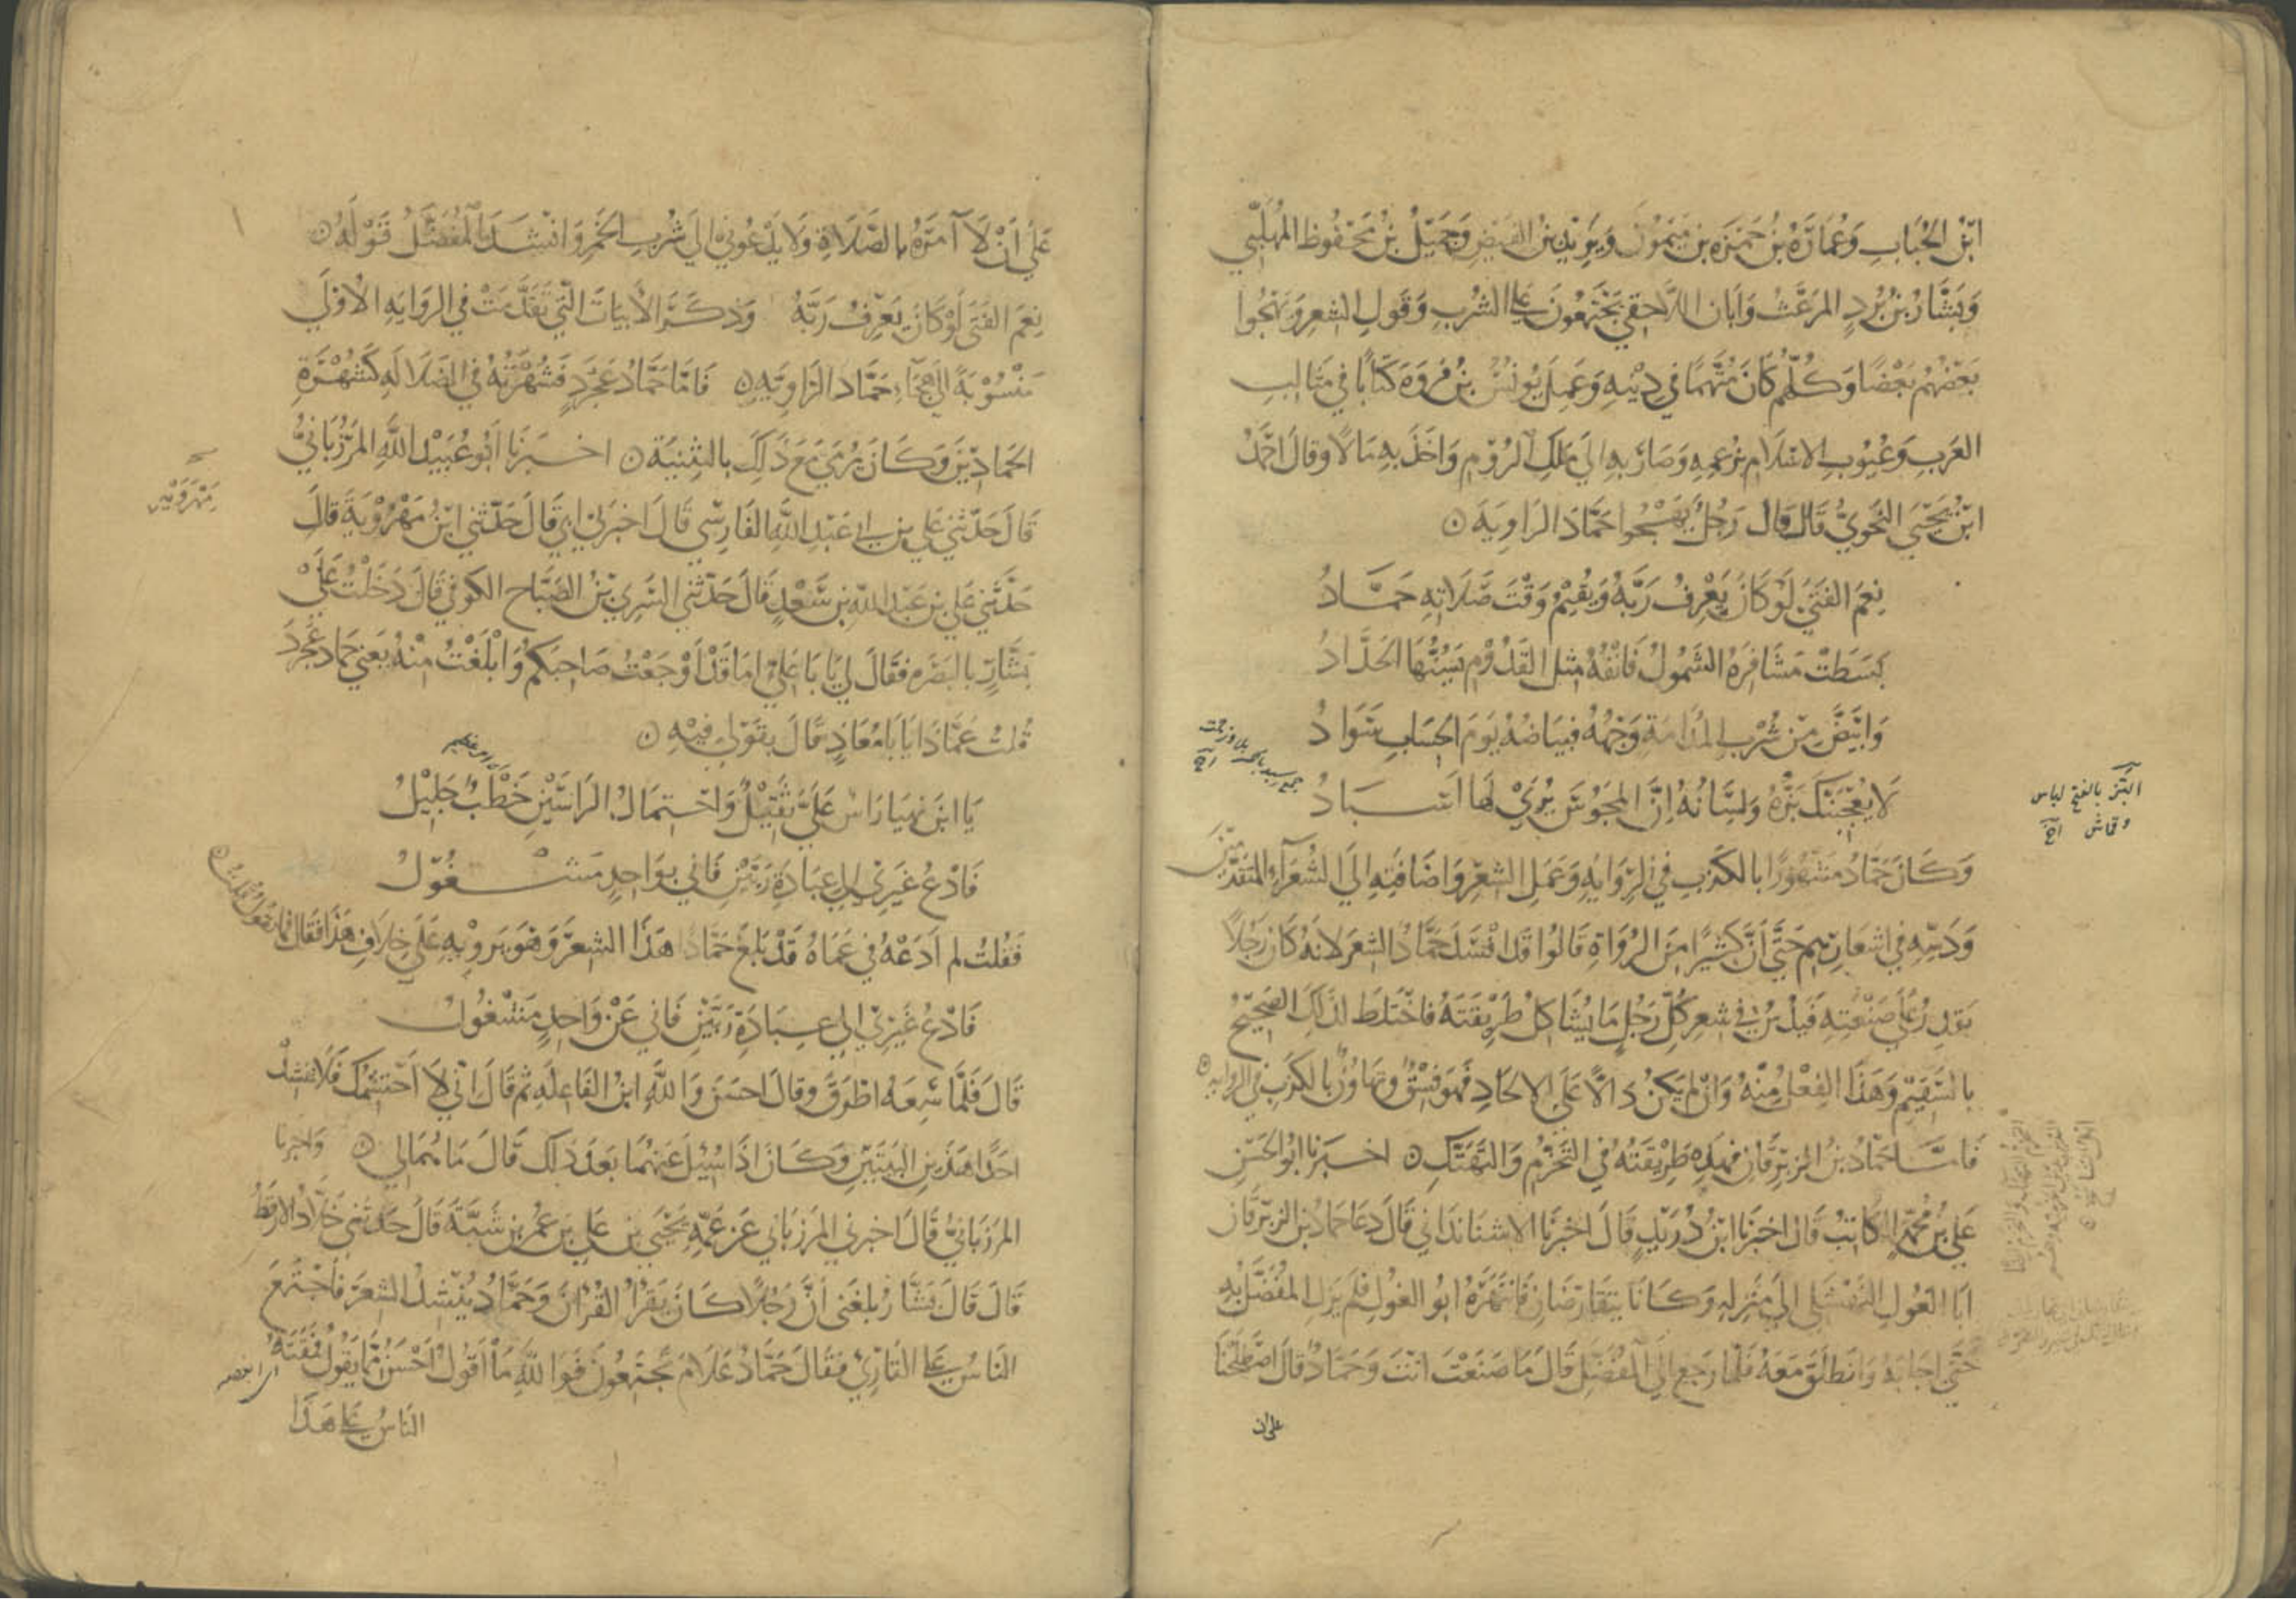 ابْنُ الحُبَابِ وَعُمَارَةُ بنُ حَمْزَه بن مَيْمُون وَيَزِيدُ بنُ الفَيْضِ وَجَمِيْلُ بْنُ مَحْفُوظ المُهَلَّبِي
وَبَشَّارُ بْنُ بُرْدٍ المرَعَّث وَأبَان اللَّاحِقي يَجْتَمِعُونَ على الشُربِ وَقَولِ الشِعرِ وَيَهْجُوا
بَعْضُهُم بَعْضًا وَكُلُّهُم كَانَ مُتَّهَمًا في دِيْنِهِ وَعَمِلَ يُونُسُ بنُ فَرْوَه كتَابًا في مَثَالبِ
العَرَبِ وَعُيُوبِ الاسْلَامِ بِزَعْمِهِ وَصَارَ بِهِ الي مَلِكِ الرُوْمِ وَاخَذَ بِهِ مَالًا وقالَ احْمَدُ
ابْنُ يَحْيَى النَحْوِيُّ قَالَ قَالَ رَجُلٌ يَهْجُوا حَمَّادَ الرَاوِيَةَ
نِعمَ الفَتَي لَوْ كَانَ يَعْرِفُ رَبَّهُ وَيُقِيْمُ وَقْتَ صَلَاتِهِ حَمَّادُ
بَسَطَتْ مَشَافِرَهُ الشَمُولُ فَانْفُهُ مِثلُ القَدُوْمِ يَسُنُّهَا الحَدَّادُ
وَابْيَضَّ مِنْ شُرْبِ المُدَامَةِ وَجْهُهُ فَبَيَاضُهُ يَوْمَ الحِسَابِ سَوَادُ
لَا يُعْجِبَنَّكَ بَزُّهُ وَلِسَانُهُ إنَّ المَجُوسَ يُرَيْ لَهَا اسْبَادُ
البَزّ بالفتح لباس
وقماش
وَكَانَ حَمَّادُ مَشْهُوْرًا بالكَذِبِ في الرِّوَايَةِ وَعَمَلِ الشِعْرِ وَاضَافَتِهِ الَي الشُعَرَآءِ المُتَقَدِّمِينَ
وَدَسِّهِ في اشعَارِهِم حَتَّي أَنَّ كَثِيْرًا مِنَ الرُوَاةِ قَالُوا قَد افْسَدَ حَمَّادُ الشِعْرَ لانهُ كَانَ رَجُلًا
يَقدِرُ عَلَي صَنْعَتِهِ فَيَدُسُّ في شعرِ كُلِّ رَجُلٍ مَا يُشَاكِلُ طَرِيْقَتَهُ فَاخْتَلَطَ لذَلِكَ الصَحِيْحُ
بالسَقِيْمِ وَهَذَا الفِعْلُ مِنْهُ وَانْ لَم يَكنُ دَالًّا عَلَي الالحَادِ فَهوَ فِسْقٌ وتَهَاوُنٌ بالكَذِبِ في الروايه
فَامَّا حَمَّادُ بنُ الزبْرِقَانِ فَهَذِهِ طَرِيْقَتُهُ في التَخَرُّمِ وَالتَهَتُّكِ اخبَرَنا ابُو الحَسَنِ
عَليُ بنُ مُحَمَّدٍ الكَاتِبُ قَالَ اخبَرَنَا ابنُ دُرَيْدٍ قَالَ اخْبرنَا الاشنَانْدَاني قَالَ دَعَا حَمادُ بن الزبرقان
ابَا الغُولِ النَهْشَلي الي مَنْزِلِهِ وَكَانَا يَتَقَارَضَانِ فَانْتَهَرَهُ ابُو الغولِ فَلَم يَزَلِ المُفَضَّلُ بِهِ
حَتَّي اجَابَهُ وَانطَلَقَ مَعَهُ فَلَمَّا رَجَعَ الَي المُفَضَّلِ قَالَ مَا صَنَعْتَ انْتَ وَحَمَّادُ قَالَ اصْطَلَحْنَا
على ان
عَلَي أنْ لَا آمرَهُ بالصَلَاةِ وَلَا يَدْعُونِي الي شُربِ الخَمرِ وَانشَدَ المُفَضَّلُ قَوْلَهُ
نِعمَ الفَتَى لَوْ كَانَ يَعْرِفُ رَبَّهُ وَذكَرَ الأبيَات الَّتي تقَدَّمَتْ في الروَايَةِ الاوْلَي
مَنْسُوْبَةً الي هِجَاءِ حَمَّاد الرَاوِيَةِ فَامَّا حَمَّادُ عَجْرَدٍ فَشُهْرَتُهُ في الضَلَالَةِ كَشُهْرَةِ
الحَمَادَيْنِ وَكَانَ يُرمَي مَعَ ذَلِكَ بالثنِيَةِ اخبَرنَا أبُو عُبَيْد اللَّهِ المَرْزُبَانِيُّ
قَالَ حَدّثَني عَلي بن ابي عَبْدِ اللَّهِ الفَارِسي قَالَ اخبَرَني ابي قَالَ حَدّثَني ابْنُ مَهْرُوْيَةَ قَالَ
مَهْرَوَيْهِ
حَدَّثَني عَلي بن عَبْدِ اللَّهِ بن سَعْدٍ قَالَ حَدّثَني السَرِي بْنُ الصَبَّاحِ الكوفي قَالَ دَخَلْتُ عَلَيْ
بَشَّارٍ بالبَصْرَه فقَالَ لي يَا بَا عَلِيّ امَا قَدْ أوْجَعْتُ صَاحِبَكُمْ وَابْلَغْتُ مِنْهُ يَعني حَماد عَجْرَدَ
قُلتُ عَمَّاذَا يَا بَا مُعَاذٍ قَالَ بِقَوْلي فِيْهِ
يَا ابنَ نِهيَا رَاسٌ عَلَيَّ ثَقِيْلٌ وَاحْتِمَالُ الرَاسَيْنِ خَطْبٌ جَلِيْلُ
امر عظيم
فَادْعُ غَيْرِي الي عِبَادَةِ رَبَّيْنِ فَاني بِوَاحِدٍ مَشْغُوْلُ
فَقُلتُ لم أدَعْهُ في عَمَاهُ قَدْ بَلَغَ حَمَّادًا هَذَا الشِعرَ وَهُوَ يَروِيْهِ عَلَي خِلَافِ هَذَا فَقَالَ مَا يَقُولُ قُلتُ
فَادْعُ غَيْرِي الي عِبَادَةِ رَبَّيْنِ فَاني عَنْ وَاحِدٍ مَشْغُولُ
قَالَ فَلَمَّا سَمِعَهُ اطْرَقَ وقَالَ احسَنَ وَاللَّهِ ابنُ الفَاعِلَةِ ثمَ قَالَ اني لَا احْتَشِمُكَ فَلَا تُنشِدْ
احَدًا هَذَينِ البَيْتَيْنِ وَكَانَ اذَا سُئِلَ عَنهُمَا بَعْدَ ذَلِكَ قَالَ مَا هُمَا لي وَاخبرنا
المَرْزبَانيُّ قَالَ اخبرني المرزبَاني عَن عَمِّهِ يَحْيَي بن عَلي عَن عُمَر بن شَبَّةَ قَالَ حَدثَني خَلَّادُ الارقط
قَالَ قَالَ بَشَّارُ بلغَني أنَّ رَجُلًا كَانَ يَقرَاُ القُرْانَ وَحَمَّادُ يُنْشِدُ الشعرَ فَاجْتَمَعَ
النَاسُ على القَارِيْ فَقَالَ حَمَّادُ عَلَامَ تَجْتَمِعُونَ فَوَاللَّهِ مَا أقُولُ احْسَنُ مِمَّا يَقُولُ فَمَقَتَهُ
اي ابغضه
النَاسُ على هَذَا